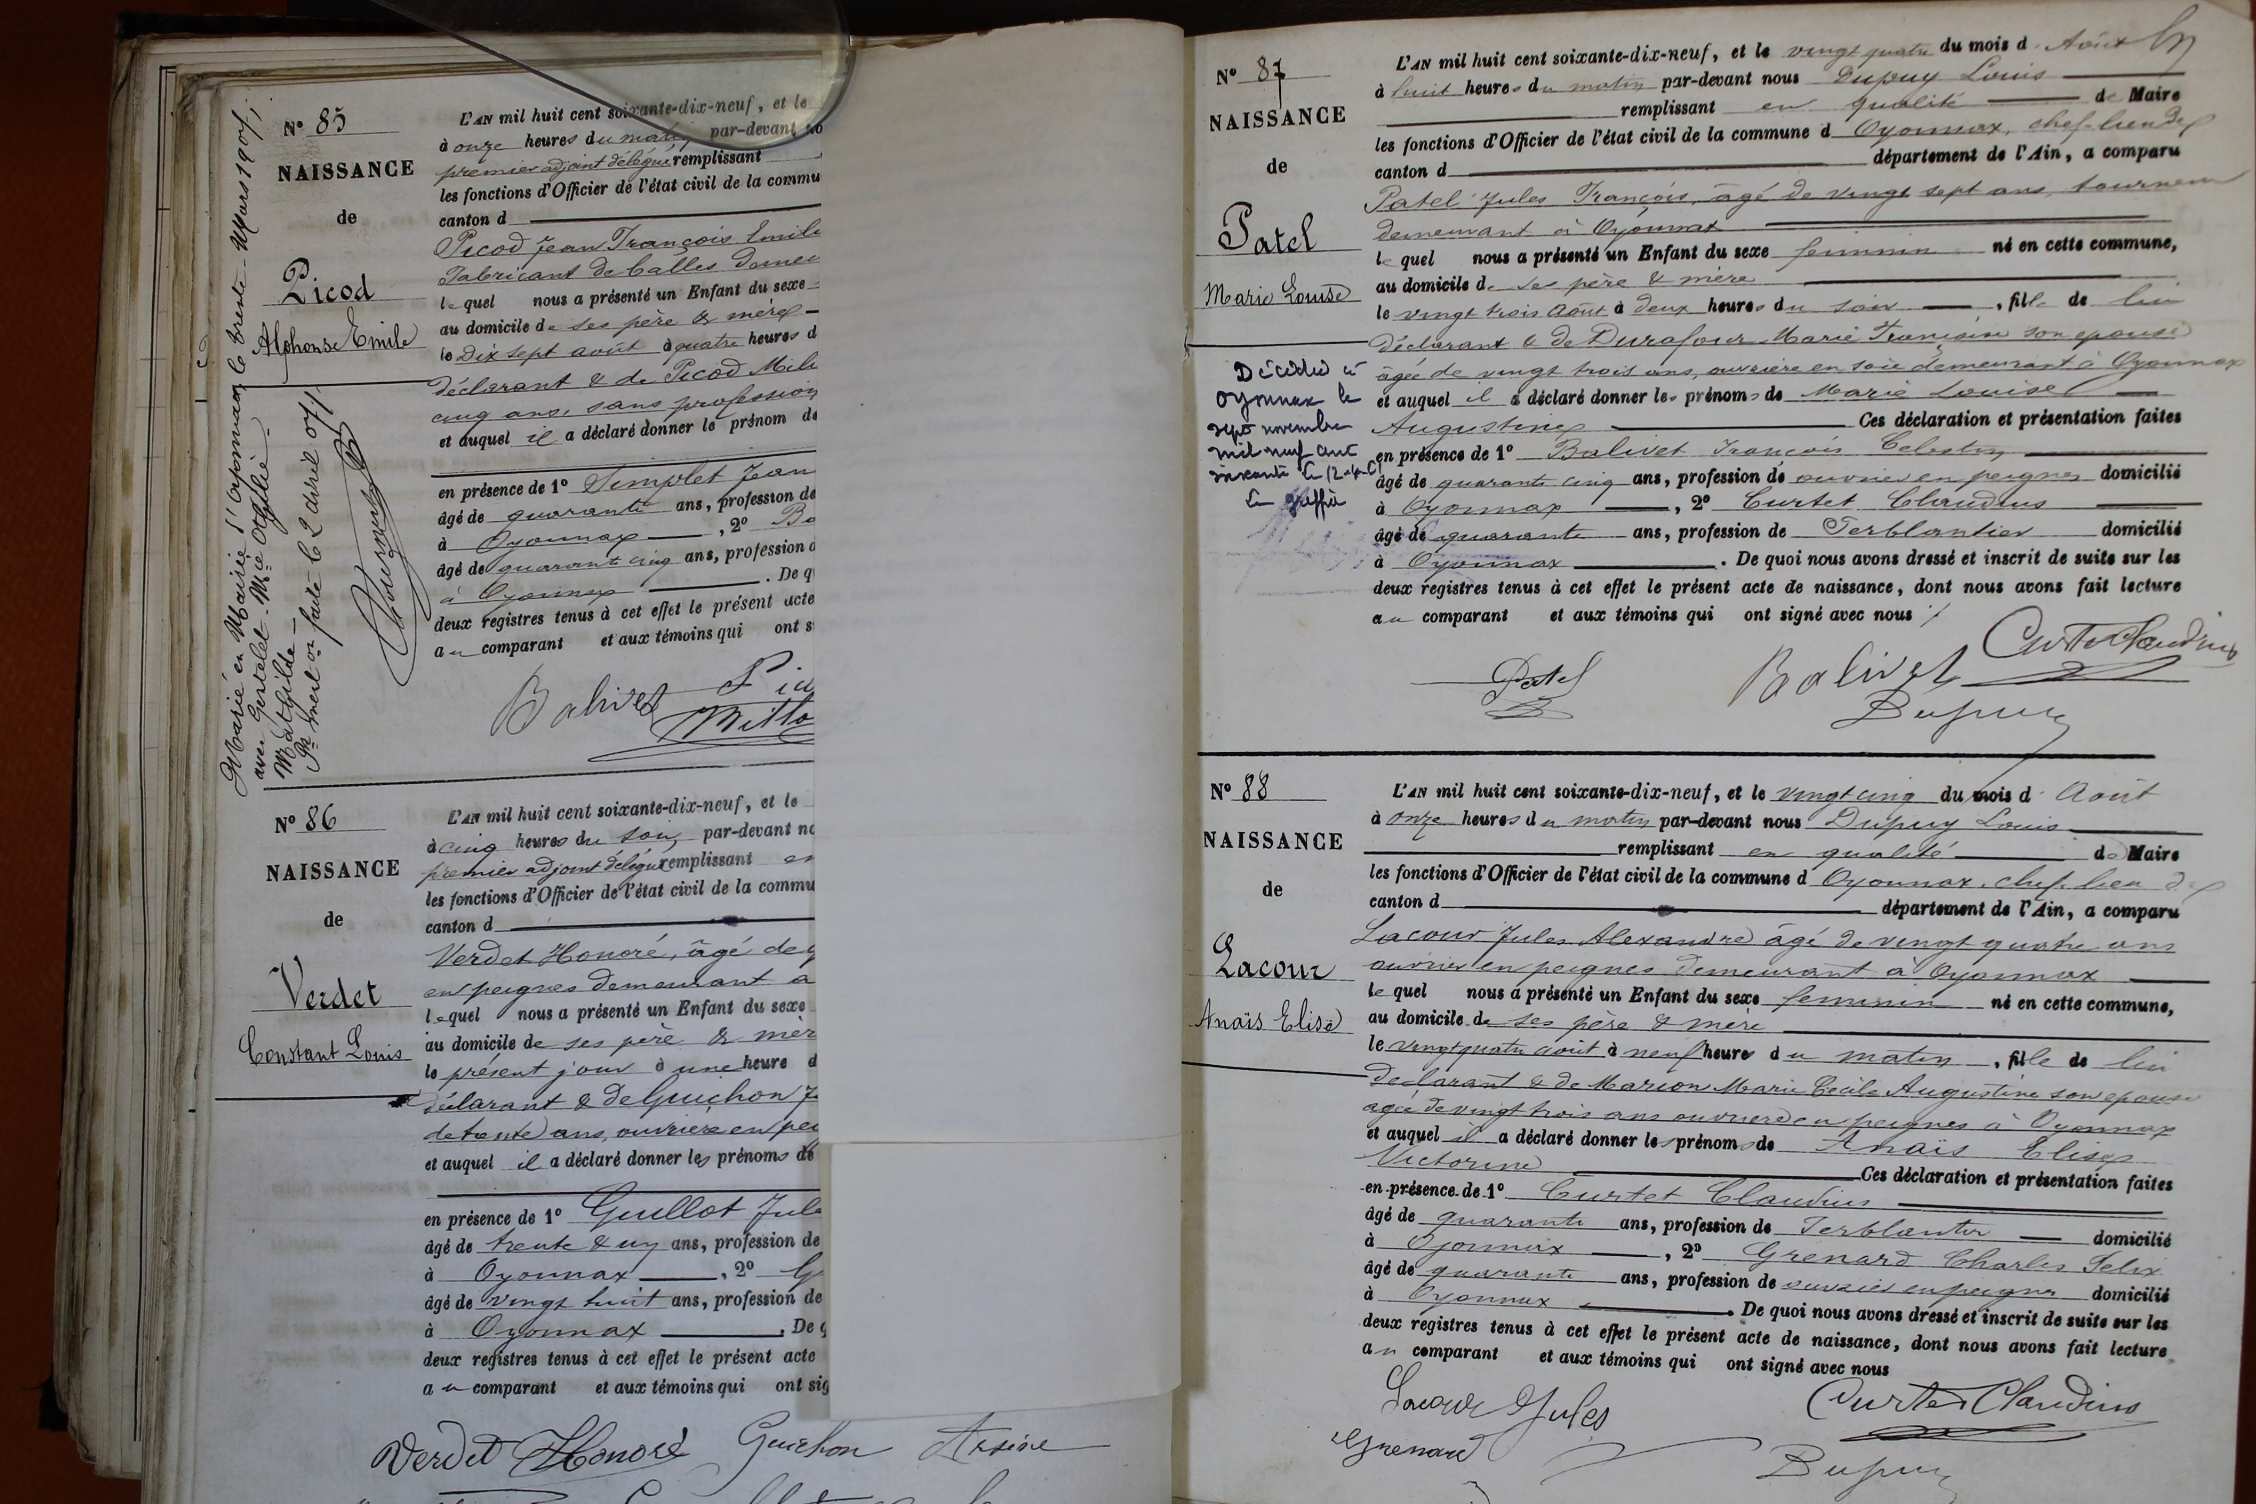 Nº 85
NAISSANCE
de
Picod
Alphonse Emile
Marié en Mairie d'Oyonnax le trente Mars 1907,
avec Gertelet Mie Ophélie
Mathilde
Pr mention faite le 2 avril 07
L'AN mil huit cent soixante-dix-neuf, et le
à onze heures du matin par-devant no
premier adjoint délégué remplissant
les fonctions d'Officier de l'état civil de la commu
canton d
Picod Jean François Emile
Fabricant de balles demeu
lequel nous a présenté un Enfant du sexe
au domicile de ses père & mère
le dix sept août à quatre heures d
déclarant & de Picod Mili
cinq ans, sans profession
et auquel il a déclaré donner le prénom de
en présence de 1º Simplet Jean
âgé de quarante ans, profession de
à Oyonnax , 2º Ba
âgé de quarante cinq ans, profession d
à Oyonnax . De q
deux registres tenus à cet effet le présent acte
au comparant et aux témoins qui ont s
Balivet Pic
Mitta
Nº 86
NAISSANCE
de
Verdet
Constant Louis
L'AN mil huit cent soixante-dix-neuf, et le
à cinq heures du soir par-devant no
premier adjoint délégué remplissant en
les fonctions d'Officier de l'état civil de la commu
canton d
Verdet Honoré, âgé de
en peignes demeurant à
lequel nous a présenté un Enfant du sexe
au domicile de ses père & mèr
le présent jour à une heure d
déclarant & de Guichon J
de trente ans, ouvrière en pei
et auquel il a déclaré donner les prénoms de
en présence de 1º Guillot Jule
âgé de trente & un ans, profession de
à Oyonnax , 2º G
âgé de vingt huit ans, profession de
à Oyonnax . De q
deux registres tenus à cet effet le présent acte
au comparant et aux témoins qui ont sig
Verdet Honoré Guichon Arsène
Nº 87
NAISSANCE
de
Patel
Marie Louise
Décédée à
Oyonnax le
sept novembre
mil neuf cent
soixante
Le greffier
L'AN mil huit cent soixante-dix-neuf, et le vingt quatre du mois d'Août
à huit heures du matin par-devant nous Dupuy Louis
remplissant en qualité de Maire
les fonctions d'Officier de l'état civil de la commune d'Oyonnax, chef-lieu de
canton d département de l'Ain, a comparu
Patel Jules François, âgé de vingt sept ans, tourneur
demeurant à Oyonnax
lequel nous a présenté un Enfant du sexe féminin né en cette commune,
au domicile de ses père & mère
le vingt trois août à deux heures du soir , fille de lui
déclarant & de Durafour Marie Françoise son épouse
âgée de vingt trois ans, ouvrière en soie demeurant à Oyonnax
et auquel il a déclaré donner les prénoms de Marie Louise
Augustine Ces déclaration et présentation faites
en présence de 1º Balivet François Célestin
âgé de quarante cinq ans, profession de ouvrier en peignes domicilié
à Oyonnax , 2º Curtet Claudius
âgé de quarante ans, profession de Ferblantier domicilié
à Oyonnax . De quoi nous avons dressé et inscrit de suite sur les
deux registres tenus à cet effet le présent acte de naissance, dont nous avons fait lecture
au comparant et aux témoins qui ont signé avec nous
Patel Balivet Curtet Claudius
Dupuy
Nº 88
NAISSANCE
de
Lacour
Anaïs Elise
L'AN mil huit cent soixante-dix-neuf, et le vingt cinq du mois d'Août
à onze heures du matin par-devant nous Dupuy Louis
remplissant en qualité de Maire
les fonctions d'Officier de l'état civil de la commune d'Oyonnax, chef-lieu de
canton d département de l'Ain, a comparu
Lacour Jules Alexandre âgé de vingt quatre ans
ouvrier en peignes demeurant à Oyonnax
lequel nous a présenté un Enfant du sexe féminin né en cette commune,
au domicile de ses père & mère
le vingt quatre août à neuf heures du matin , fille de lui
déclarant & de Marion Marie Cécile Augustine son épouse
âgée de vingt trois ans ouvrière en peignes à Oyonnax
et auquel il a déclaré donner les prénoms de Anaïs Elise
Victorine Ces déclaration et présentation faites
en présence de 1º Curtet Claudius
âgé de quarante ans, profession de Ferblantier domicilié
à Oyonnax , 2º Grenard Charles Felix
âgé de quarante ans, profession de ouvrier en peignes domicilié
à Oyonnax . De quoi nous avons dressé et inscrit de suite sur les
deux registres tenus à cet effet le présent acte de naissance, dont nous avons fait lecture
au comparant et aux témoins qui ont signé avec nous
Lacour Jules Curtet Claudius
Grenard Dupuy